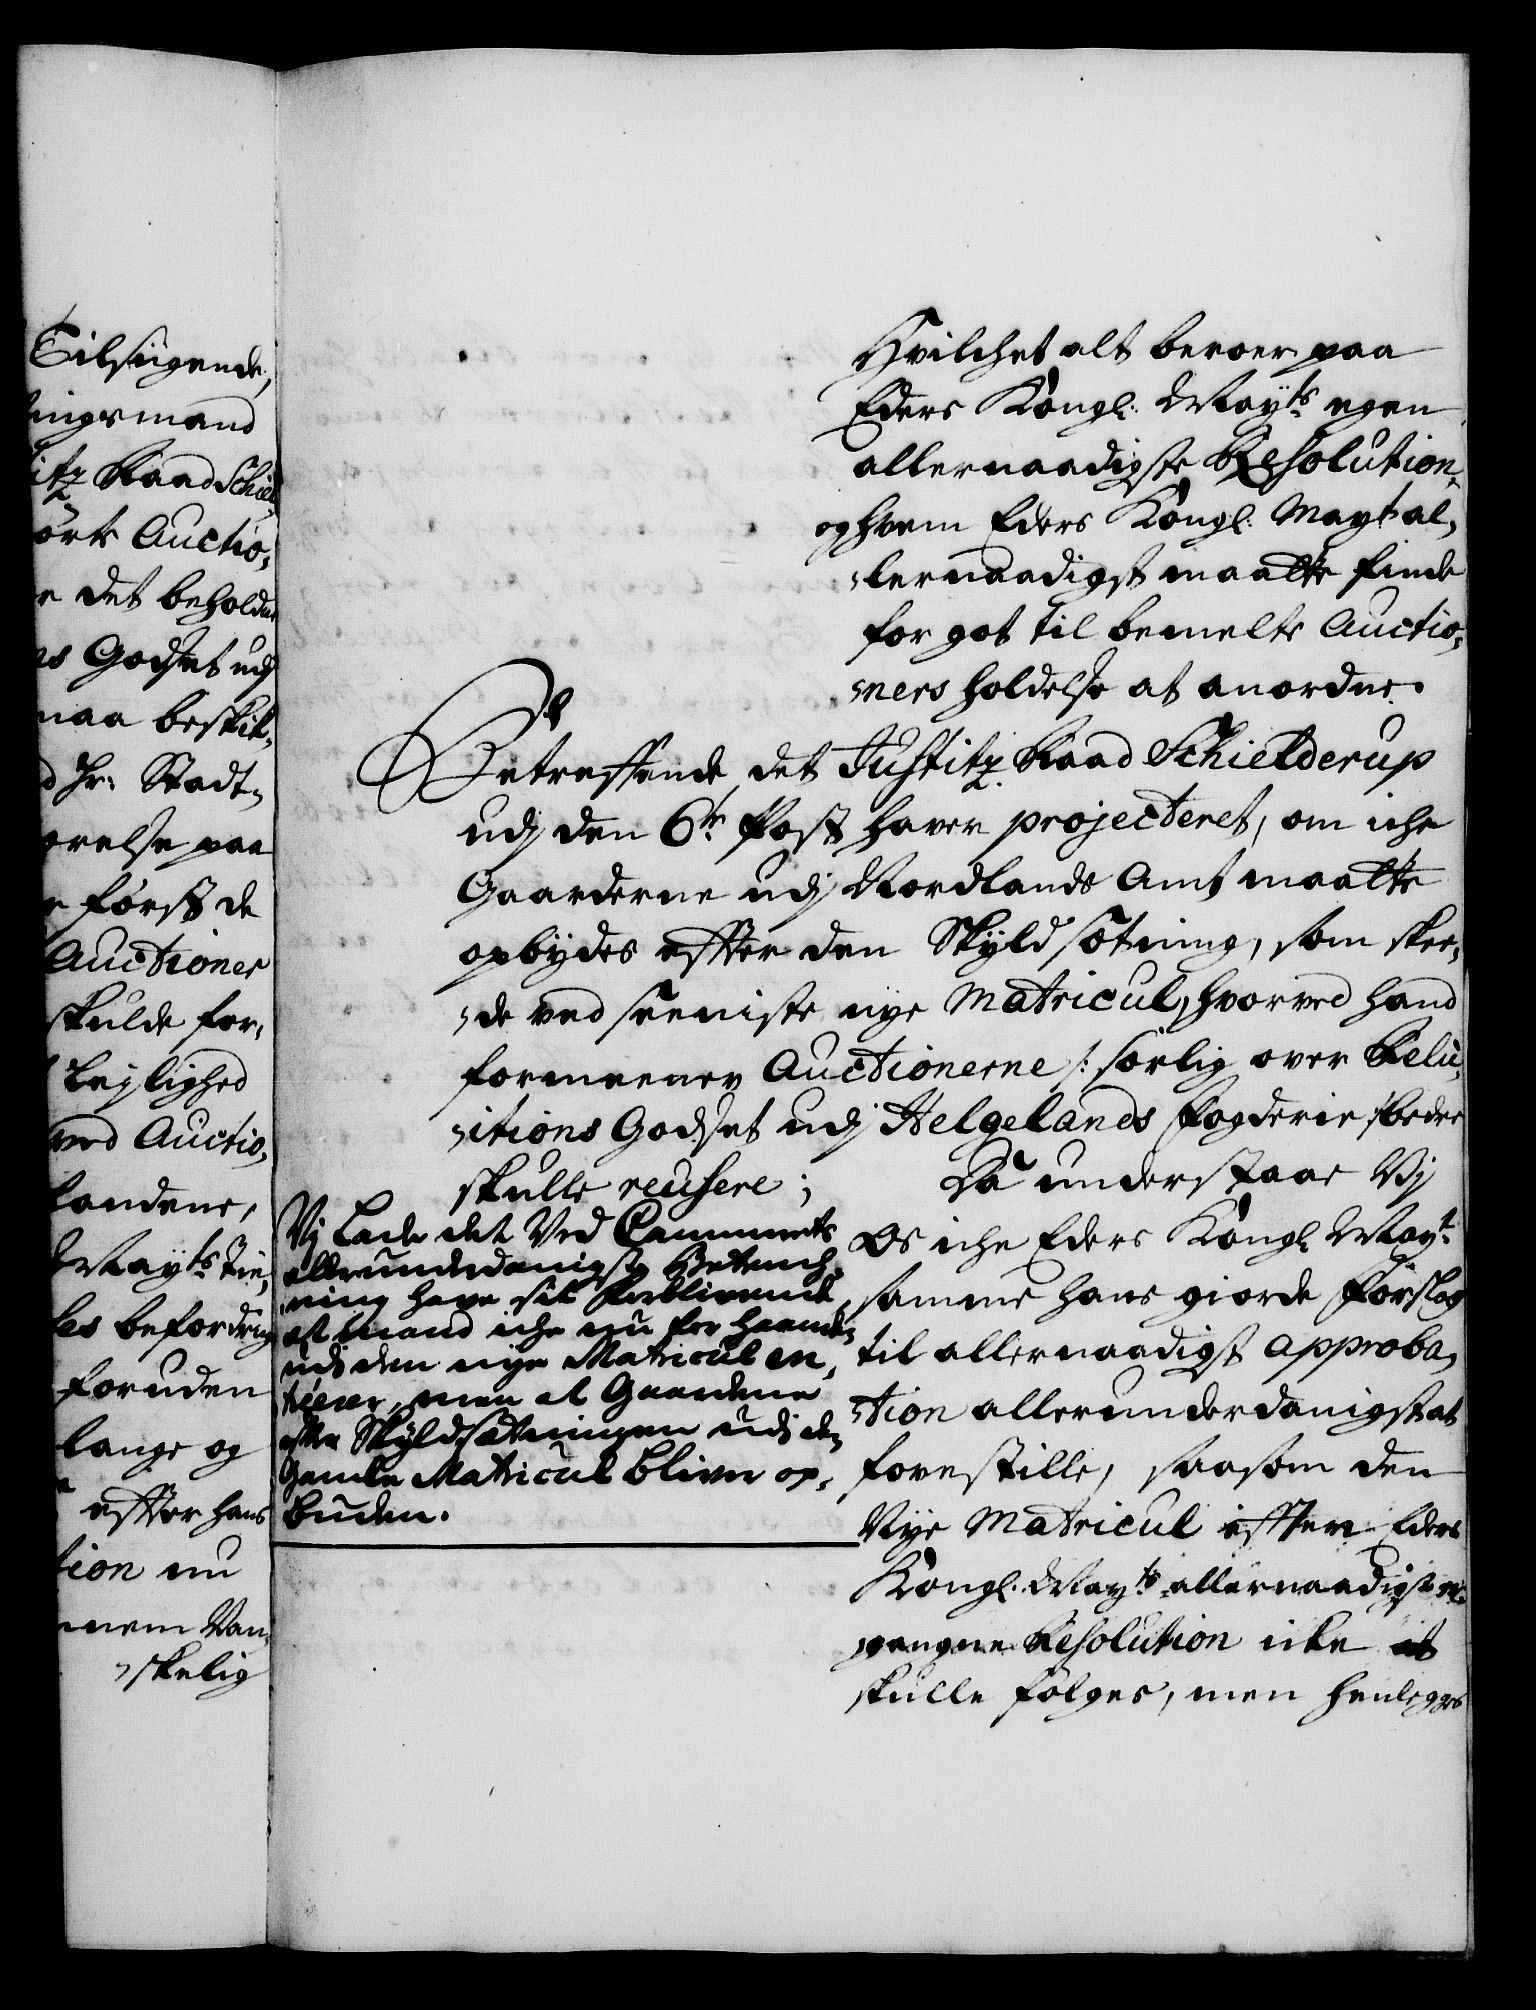 Tilsigende,
ingsmand
itz Raad Schiel
örte Auctio,
r det beholdne
ns Godset udj
maa beskik,
d Hr. Stadt,
relse paa
r först de
Auctioner
skulde for,
Leylighed
ved Auctio,
landene,
Mayts Tie,
les befordring
foruden
lange og
effter hans
tion nu
nem Van,
skelig
Hvilchet alt beroer paa
Eders Kongl: Mayts egen
allernaadigste Resolution,
og hvem Eders Kongl: Mayt al,
lernaadigst maatte finde
for got til bemelte Auctio,
ners holdelse at anordne.
Betreffende det Justitz Raad Schielderup
udj den 6te Post haver projecteret, om iche
Gaarderne udj Nordlands Amt maatte
opbydes effter den Skyldsætning, som skee,
de ved seeniste nye Matricul, hvorved hand
formeener Auctionerne /: særlig over Relu,
itions Godset udj Helgelands Fogderie :/ bedre
skulle reusere;
Da understaae Vj
Os iche Eders Kongl Mayt
samme hans giorde Forslag
til allernaadigst approba,
tion allerunderdanigst at
forestille, saasom den
Nye Matricul effter Eders
Kongl. Mayts allernaadigst
gangne Resolution icke
skulle fölges, men henlegges
Vj Lade det Ved Cammerets
allerunderdanigste Betench,
ning have sit forblivende,
at mand iche nu for haanden
udi den nye Matricul en,
men at Gaardene
efter Skyldsætningen udi den
Gamle Matricul bliver op,
buden.